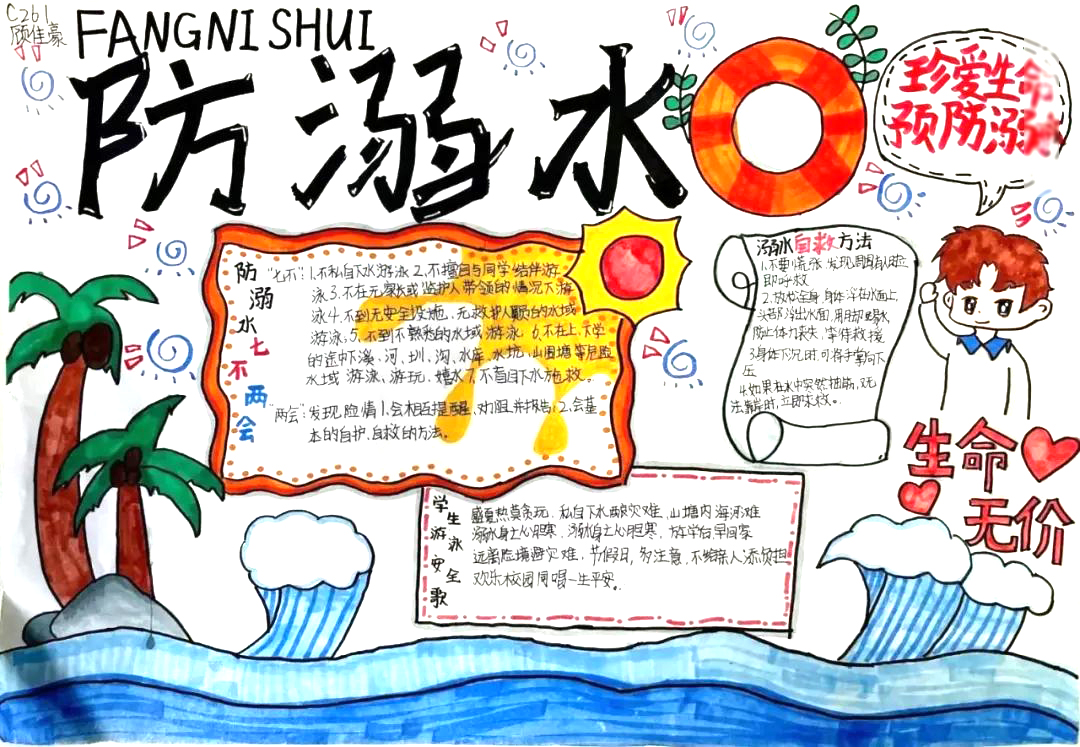 C261
顾佳豪
FANGNI SHUI
防溺水
珍爱生命
预防溺
防溺水七不两会
"七不":1.不私自下水游泳2.不擅自与同学结伴游
泳3.不在无家长或监护人带领的情况下游
泳4.不到无安全设施、无救护人员的水域
游泳5.不到不熟悉的水域游泳6.不在上下学
的途中下溪、河、圳、沟、水库、水坑、山围塘等危险
水域游泳、游玩、嬉水7.不盲目下水施救。
"两会":发现险情1.会相互提醒、劝阻、并报告;2.会基
本的自护、自救的方法。
溺水自救方法
1.不要慌张发现周围有人时立
即呼救
2.放松全身,身体浮在水面上,
头部浮出水面,用脚踢水
防止体力丧失,等待救援
3.身体下沉时,可将手掌向下
压
4.如果在水中突然抽筋,又无
法靠岸时,立即求救。
生命
无价
学生游泳安全歌
盛夏热莫贪玩,私自下水酿灾难,山塘内海河难
溺水身亡心胆寒,溺水身亡心胆寒,放学后早回家
远离险境避灾难,节假日,多注意,不给亲人添负担
欢乐校园同唱一生平安。